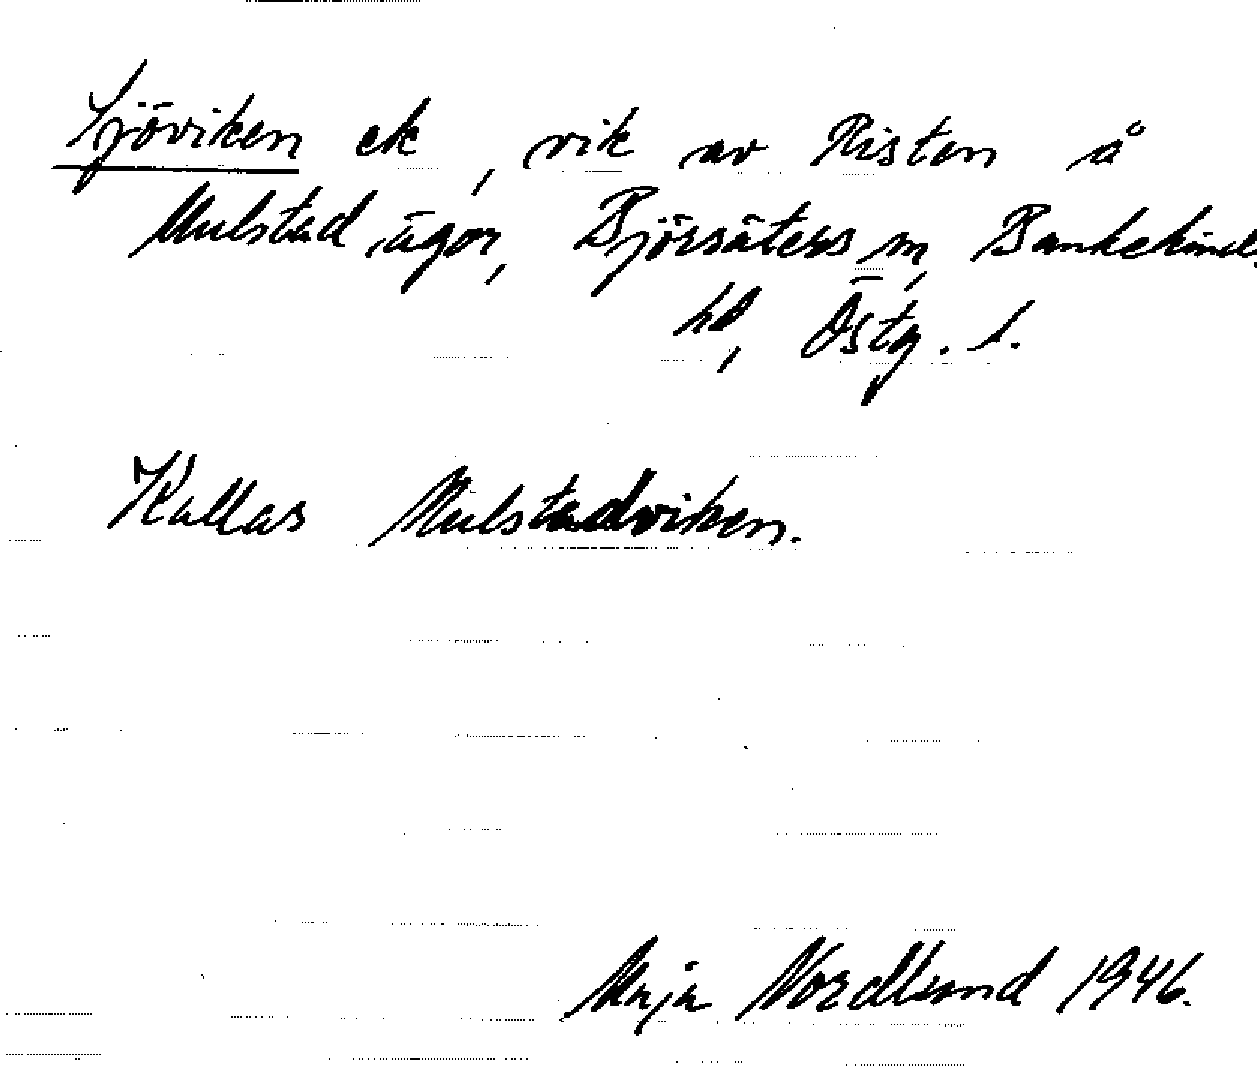 Sjöviken ek, vik av Risten å
Mulstad ägor, Björsäters sn, Bankekinds
hd, Östg. l.
Kallas Mulstadviken.
Maja Nordlund 1946.